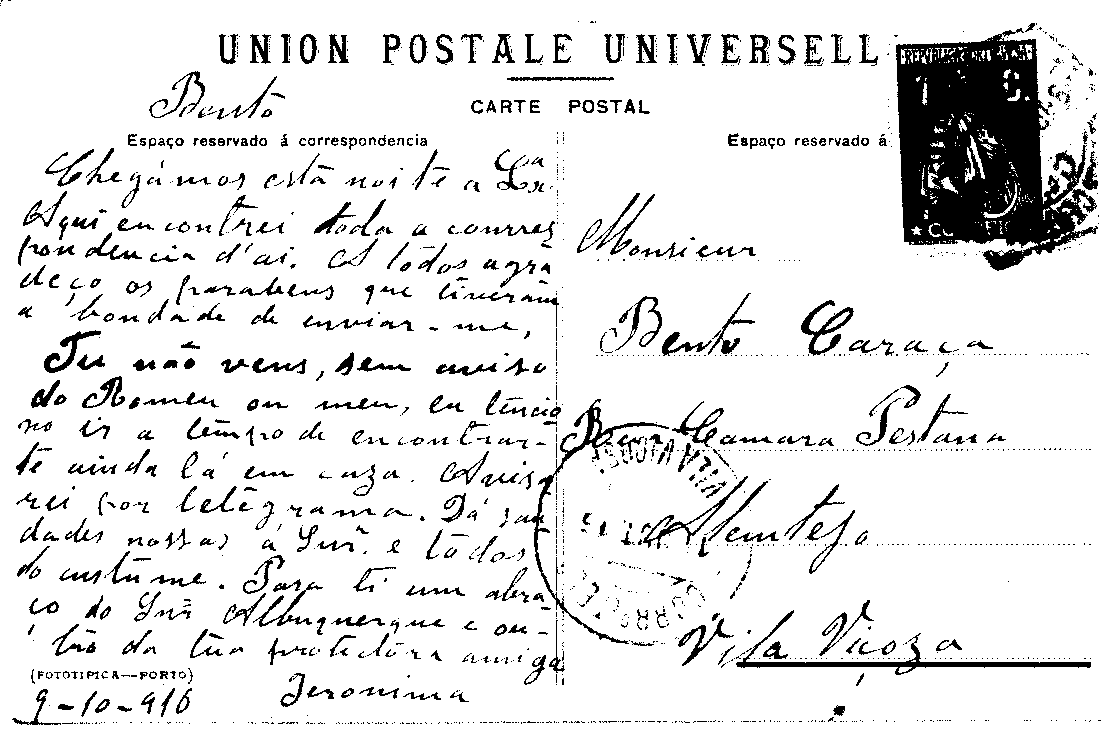 UNION POSTALE UNIVERSELL
CARTE POSTAL
Bento
Espaço reservado á correspondencia
Chegámos esta noite a Lxa
Aqui encontrei toda a corres
pondencia d'ai. A todos agra
deço os parabens que tiveram
a bondade de enviar-me,
Tu não vens, sem aviso
do Romeu ou meu, eu tencio
no ir a tempo de encontrar-
te ainda lá em caza. Avisa
rei por telegrama. Dá sau
dades nossas á Snrª. e todos
do custume. Para ti um abra
ço do Snr Albuquerque e ou-
tro da tua protectora amiga
Jeronima
(FOTOTIPICA—PORTO)
9-10-916
Espaço reservado á
REPUBLICA PORTUGUESA
1 C.
Monsieur
Bento Caraça
Rua Camara Pestana
Alemtejo
Vila Viçoza
VILA VIÇOSA
CORREIO